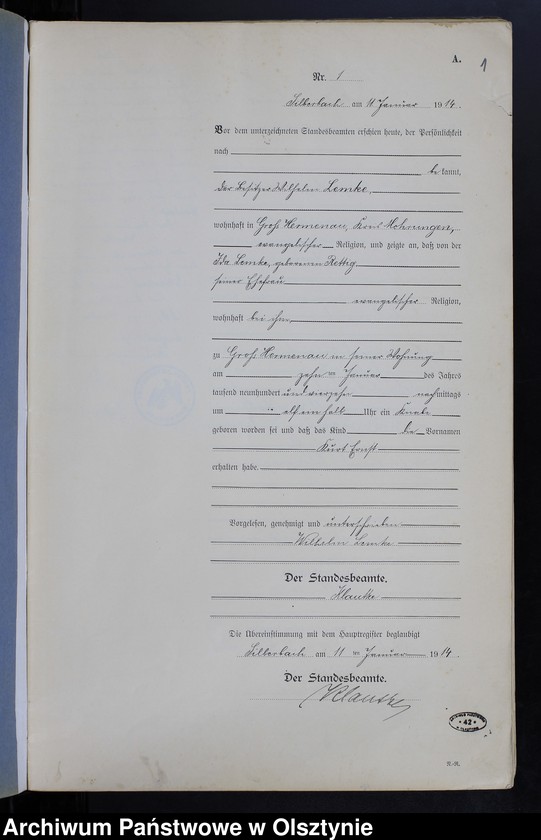 A.
1
Nr. 1
Silberbach am 11 Januar 1914.
Vor dem unterzeichneten Standesbeamten erschien heute, der Persönlichkeit
nach
be kannt,
der Besitzer Wilhelm Lemke,
wohnhaft in Groß Hermenau, Kreis Mohrungen,
evangelischer Religion, und zeigte an, daß von der
Ida Lemke, geborenen Rettig
seiner Ehefrau
evangelischer Religion,
wohnhaft bei ihm,
zu Groß Hermenau in seiner Wohnung
am zehnten Januar des Jahres
tausend neunhundert und vierzehn nachmittags
um elf ein halb Uhr ein Knabe
geboren worden sei und daß das Kind die Vornamen
Kurt Ernst
erhalten habe.
Vorgelesen, genehmigt und unterschrieben
Wilhelm Lemke
Der Standesbeamte.
Klautke
Die Übereinstimmung mit dem Hauptregister beglaubigt
Silberbach am 11 ten Januar 1914.
Der Standesbeamte.
Klautke
42
Archiwum Państwowe w Olsztynie